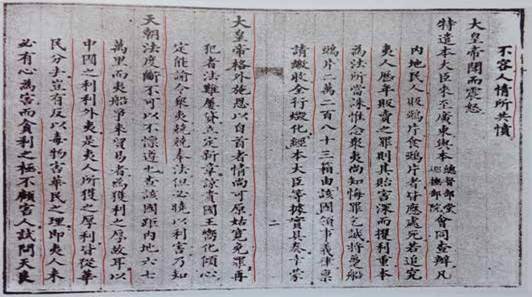 不容人情所共憤
大皇帝聞而震怒
特遣本大臣來至廣東與本總督部堂巡撫部院會同查辦凡
內地民人販鴉片食鴉片者皆應處死若追究
夷人歷年販賣之罪則其貽害深而攫利重本
為法所當誅惟念衆夷尚知悔罪之誠將躉船
鴉片二萬二百八十三箱由該國領事義律稟
請繳收全行燬化經本大臣等據實具奏幸蒙
二
大皇帝格外施恩以自首者情尚可原姑寬免罪再
犯者法難屢貸立定新章諒貴國王嚮化傾心
定能諭令衆夷兢兢奉法但必曉以利害乃知
天朝法度斷不可以不懍遵也查該國距內地六七
萬里而夷船爭來貿易者為獲利之厚故耳以
中國之利利外夷是夷人所獲之厚利皆從華
民分去豈有反以毒物害華民之理即夷人未
必有心為害而貪利之極不顧害人試問天良